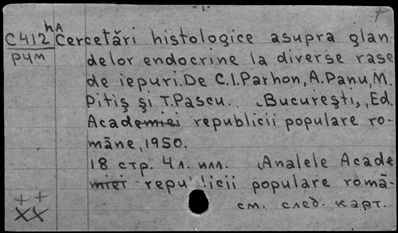 -1-
С412 hА Cercetări histologice asupra glan
рум delor endocrine la diverse rase
de iepuri. De C.I.Parhon, A.Panu, M.
Pitiş şi T.Pascu. „Bucureşti„, Ed.
Academiei republicii populare ro-
mâne, 1950.
18 стр. 4л. илл. „Analele Acade
miei republicii populare româ-
++ см. след. карт.
XX